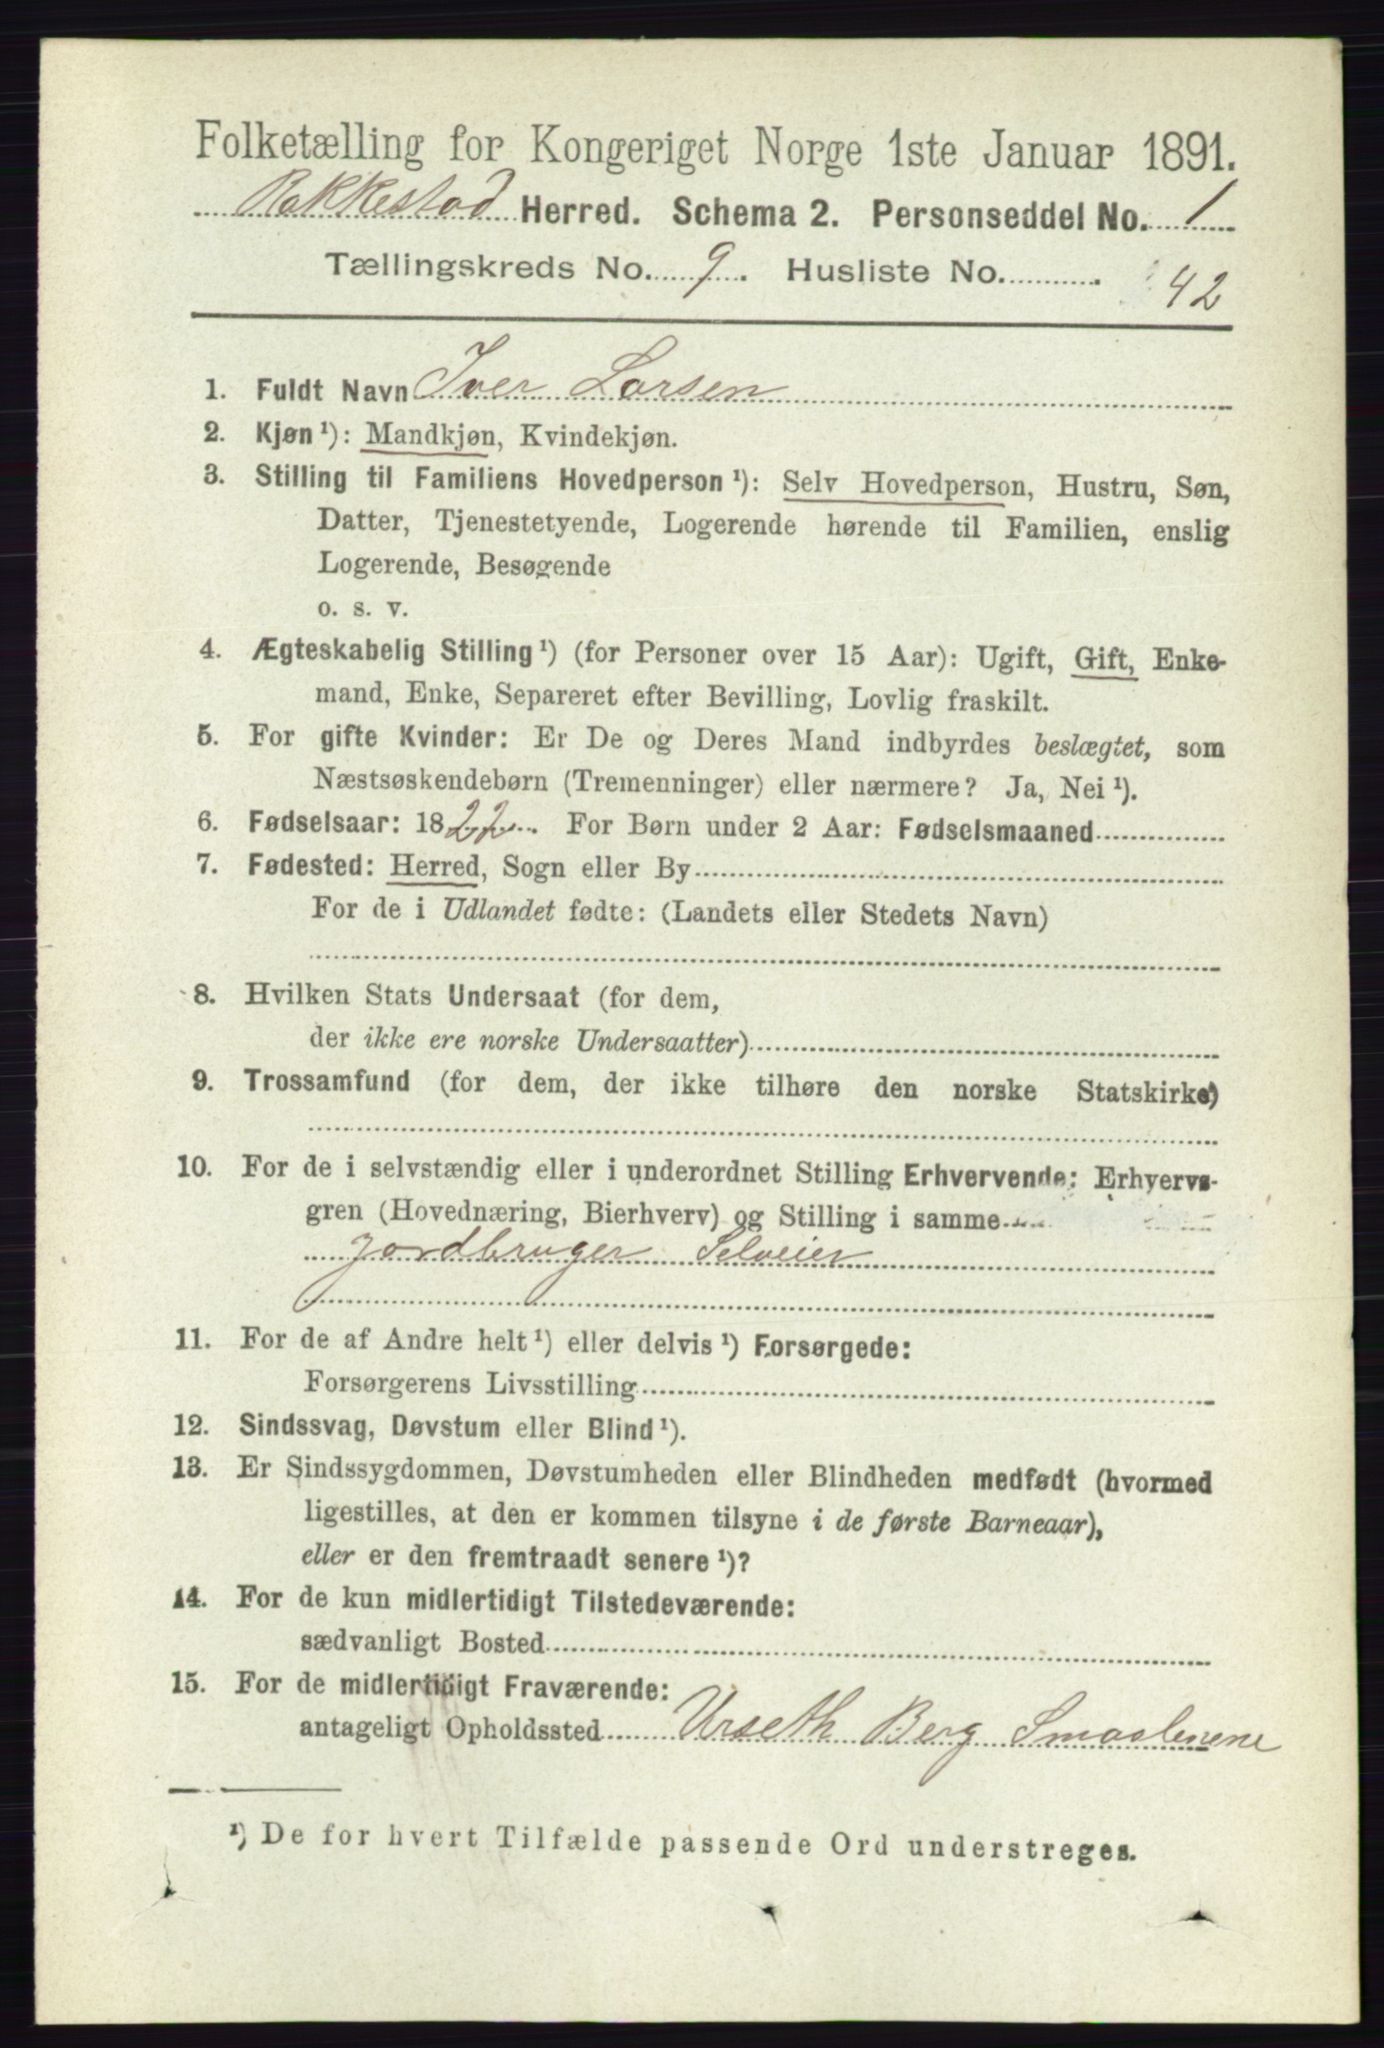 Folketælling for Kongeriget Norge 1ste Januar 1891.
Rakkestad Herred. Schema 2. Personseddel No. 1
Tællingskreds No. 9. Husliste No. 42
1. Fuldt Navn Iver Larsen
2. Kjøn¹): Mandkjøn, Kvindekjøn.
3. Stilling til Familiens Hovedperson¹): Selv Hovedperson, Hustru, Søn,
Datter, Tjenestetyende, Logerende hørende til Familien, enslig
Logerende, Besøgende
o. s. v.
4. Ægteskabelig Stilling¹) (for Personer over 15 Aar): Ugift, Gift, Enke-
mand, Enke, Separeret efter Bevilling, Lovlig fraskilt.
5. For gifte Kvinder: Er De og Deres Mand indbyrdes beslægtet, som
Næstsøskendebørn (Tremenninger) eller nærmere? Ja, Nei¹).
6. Fødselsaar: 1822. For Børn under 2 Aar: Fødselsmaaned
7. Fødested: Herred, Sogn eller By
For de i Udlandet fødte: (Landets eller Stedets Navn)
8. Hvilken Stats Undersaat (for dem,
der ikke ere norske Undersaatter)
9. Trossamfund (for dem, der ikke tilhøre den norske Statskirke)
10. For de i selvstændig eller i underordnet Stilling Erhvervende: Erhvervs-
gren (Hovednæring, Bierhverv) og Stilling i samme
Jordbruger Selveier
11. For de af Andre helt¹) eller delvis¹) Forsørgede:
Forsørgerens Livsstilling
12. Sindssvag, Døvstum eller Blind¹).
13. Er Sindssygdommen, Døvstumheden eller Blindheden medfødt (hvormed
ligestilles, at den er kommen tilsyne i de første Barneaar),
eller er den fremtraadt senere¹)?
14. For de kun midlertidigt Tilstedeværende:
sædvanligt Bosted
15. For de midlertidigt Fraværende:
antageligt Opholdssted Urseth Berg Smaalenene
¹) De for hvert Tilfælde passende Ord understreges.